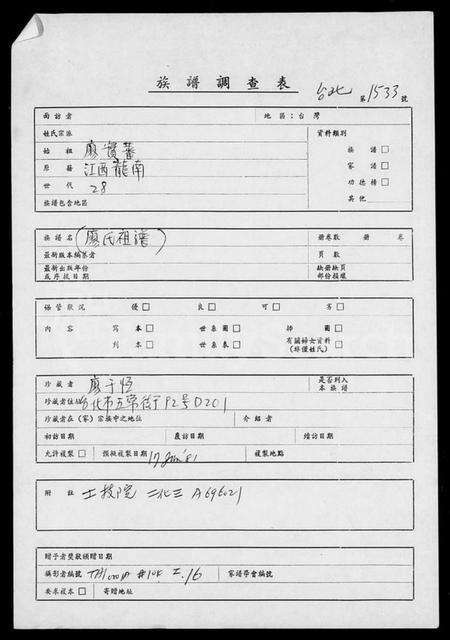 族譜調查表 台北 第1533號
面訪者 地區:台灣
姓氏宗派 資料類別
始祖 廖實蕃 族譜□
原籍 江西龍南 家譜□
世代 28 功德榜□
族譜包含地區 其他
族譜名(廖氏祖譜) 冊卷數 冊 卷
最新版本編纂者 頁數
最新出版年份 缺冊缺頁
或存放日期 部份損壞
保管狀況 優□ 良□ 可□ 劣□
內容 寫本□ 世系圖□ 插圖□
刊本□ 世系表□ 有關婦女資料□
(非僅姓氏)
珍藏者 廖于恆 是否列入
本族譜
珍藏者住址 台北市五常街 P2號D201
珍藏者在(家)宗族中之地位 介紹者
初訪日期 應訪日期 續訪日期
允許複製□ 預擬複製日期 17 Jun '81 複製地點
附註 士技院 二化三 A696021
贈予者獎狀頒贈日期
攝影者編號 #108 I.16 家譜學會編號
要求複本□ 寄贈地址